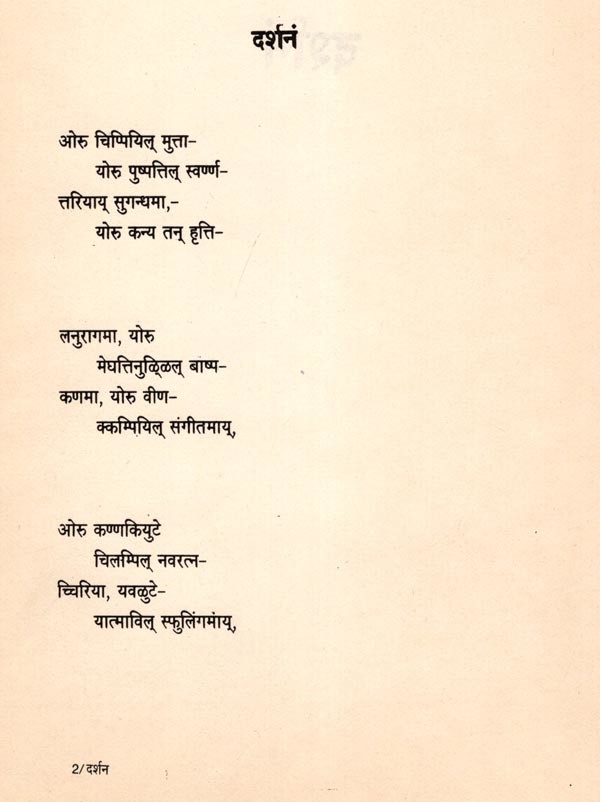 दर्शनं
ओरु चिप्पियिल् मुत्ता–
योरु पुष्पत्तिल् स्वर्ण्ण–
त्तरियाय् सुगन्धमा,–
योरु कन्य तन् हृत्ति–
लनुरागमा, योरु
मेघत्तिनुळ्ळिल् बाष्प–
कणमा, योरु वीण–
क्कम्पियिल् संगीतमाय्,
ओरु कण्णकियुटे
चिलम्पिल् नवरत्न–
च्चिरिया, यवळुटे–
यात्माविल् स्फुलिंगमाय्,
2/दर्शन